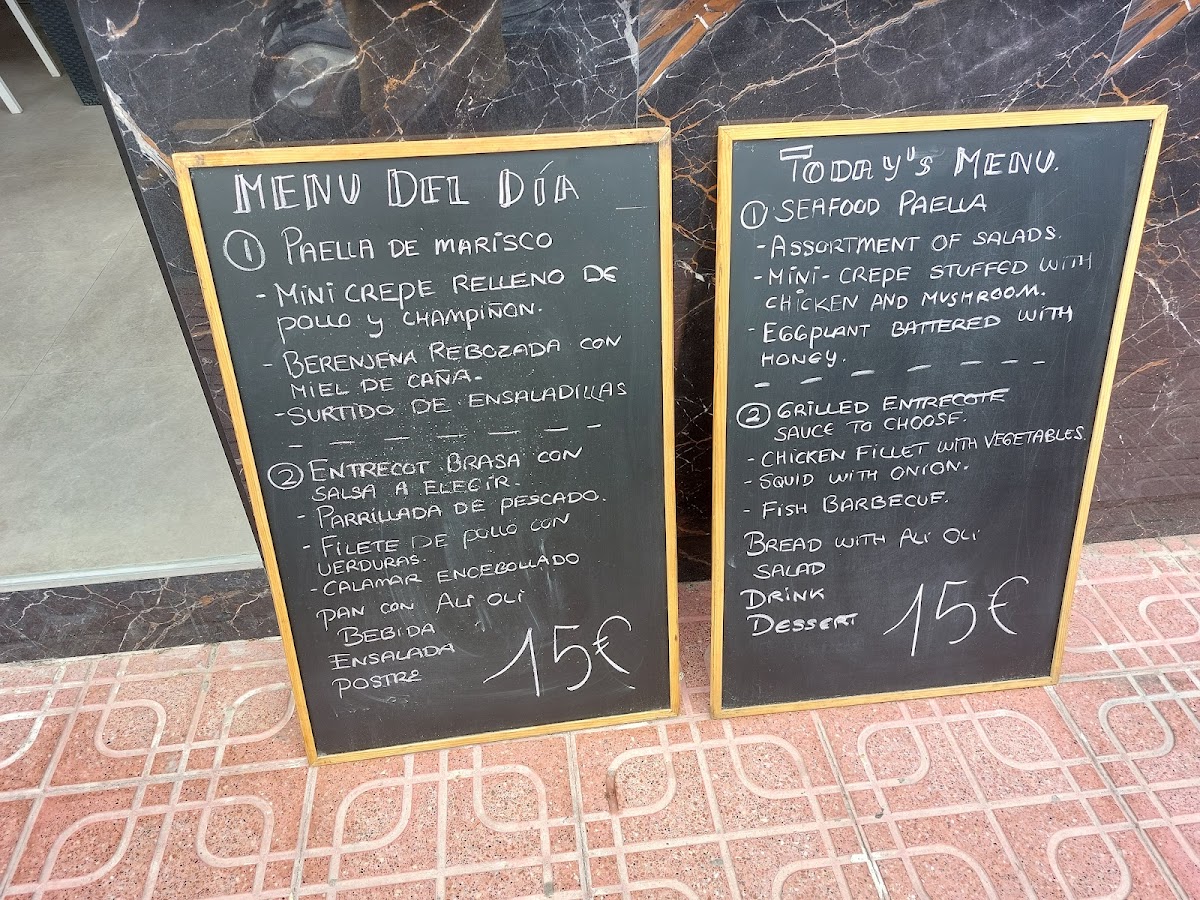 MENU DEL DÍA
① PAELLA DE MARISCO
- MINI CREPE RELLENO DE
POLLO Y CHAMPIÑON.
- BERENJENA REBOZADA CON
MIEL DE CAÑA.
- SURTIDO DE ENSALADILLAS
② ENTRECOT BRASA CON
SALSA A ELEGIR.
- PARRILLADA DE PESCADO.
- FILETE DE POLLO CON
VERDURAS.
- CALAMAR ENCEBOLLADO
PAN CON ALI OLI
BEBIDA
ENSALADA
POSTRE
15€
TODAY'S MENU.
① SEAFOOD PAELLA
- ASSORTMENT OF SALADS.
- MINI-CREPE STUFFED WITH
CHICKEN AND MUSHROOM.
- EGGPLANT BATTERED WITH
HONEY.
② GRILLED ENTRECOTE
SAUCE TO CHOOSE.
- CHICKEN FILLET WITH VEGETABLES.
- SQUID WITH ONION.
- FISH BARBECUE.
BREAD WITH ALI OLI
SALAD
DRINK
DESSERT
15€